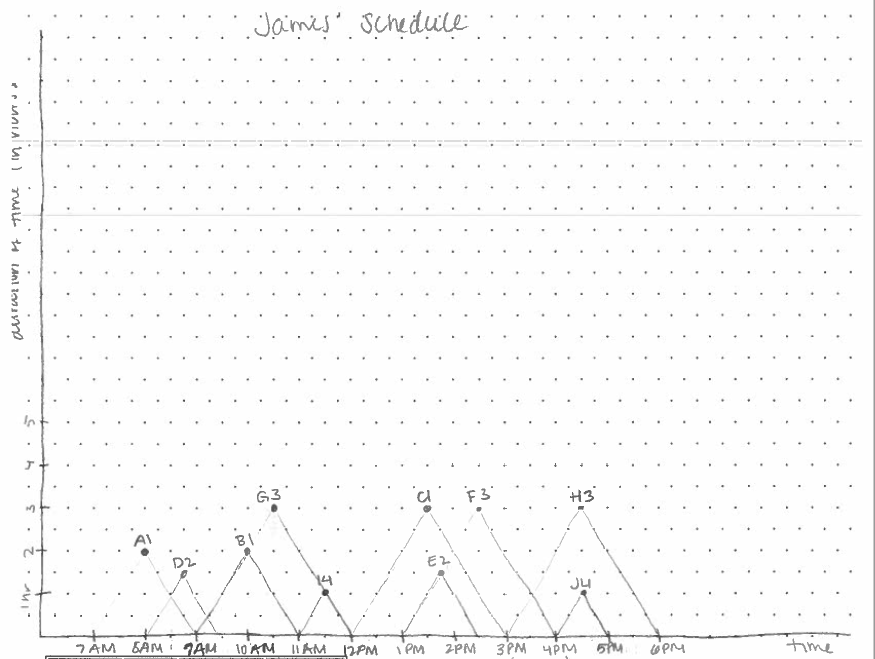 James' Schedule
duration of time (in hours)
5
4
3
2
1hr
G3
C1
F3
H3
A1
B1
D2
E2
I4
J4
7AM 8AM 9AM 10AM 11AM 12PM 1PM 2PM 3PM 4PM 5PM 6PM time